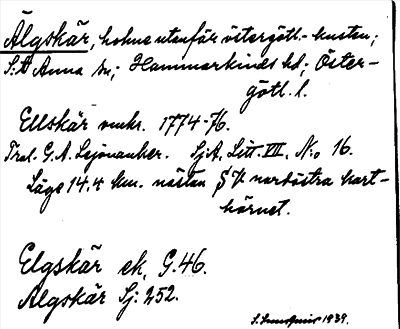 Älgskär, holme utanför östergötl. kusten;
S:t Anna sn; Hammarkinds hd; Öster-
götl. l.
Ellskär omkr. 1774-76.
Trol. G. A. Lejonanker. Sj.A. Litt. VII. No 16.
Läge 14,4 km. nästan V nordöstra kart-
hörnet.
Elgskär ek. G.46.
Älgskär Sj: 252.
1939.